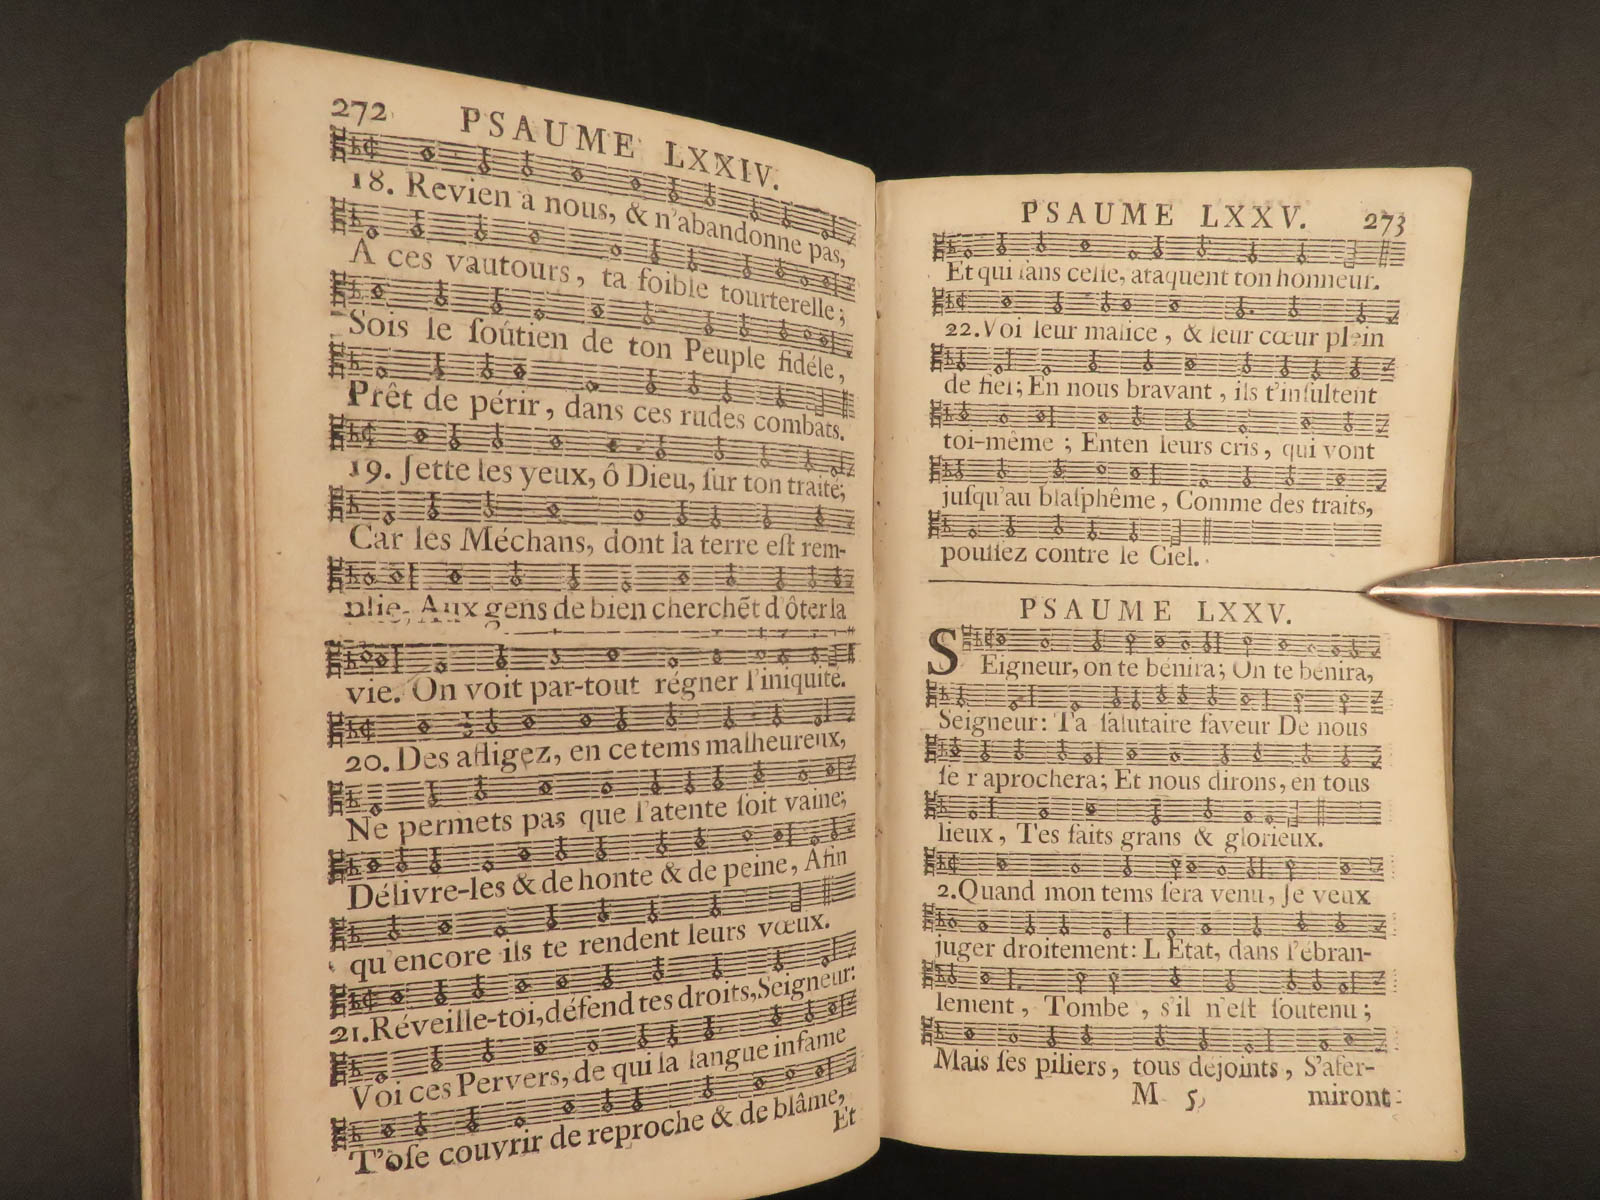 272
PSAUME LXXIV.
18. Revien à nous, & n'abandonne pas,
A ces vautours, ta foible tourterelle;
Sois le ſoûtien de ton Peuple fidéle,
Prêt de périr, dans ces rudes combats.
19. Jette les yeux, ô Dieu, ſur ton traité;
Car les Méchans, dont la terre eſt rem-
plie, Aux gens de bien cherchẽt d'ôter la
vie. On voit par-tout régner l'iniquité.
20. Des afligez, en ce tems malheureux,
Ne permets pas que l'atente ſoit vaine;
Délivre-les & de honte & de peine, Afin
qu'encore ils te rendent leurs vœux.
21. Réveille-toi, défend tes droits, Seigneur:
Voi ces Pervers, de qui la langue infame
T'oſe couvrir de reproche & de blâme,
Et
PSAUME LXXV. 273
Et qui ſans ceſſe, ataquent ton honneur.
22. Voi leur malice, & leur cœur plein
de fiel; En nous bravant, ils t'inſultent
toi-même; Enten leurs cris, qui vont
juſqu'au blaſphême, Comme des traits,
pouſſez contre le Ciel.
PSAUME LXXV.
SEigneur, on te bénira; On te bénira,
Seigneur: Ta ſalutaire faveur De nous
ſe raprochera; Et nous dirons, en tous
lieux, Tes faits grans & glorieux.
2. Quand mon tems ſera venu, Je veux
juger droitement: L'Etat, dans l'ébran-
lement, Tombe, s'il n'eſt ſoutenu;
Mais ſes piliers, tous déjoints, S'afer-
M 5 miront